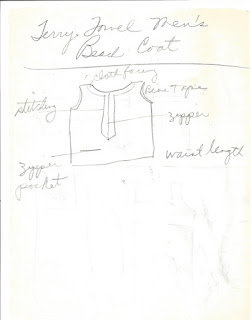 Terry Towel Men's
Beach Coat
cloth facing
stitching
zipper
zipper
pocket
waist length